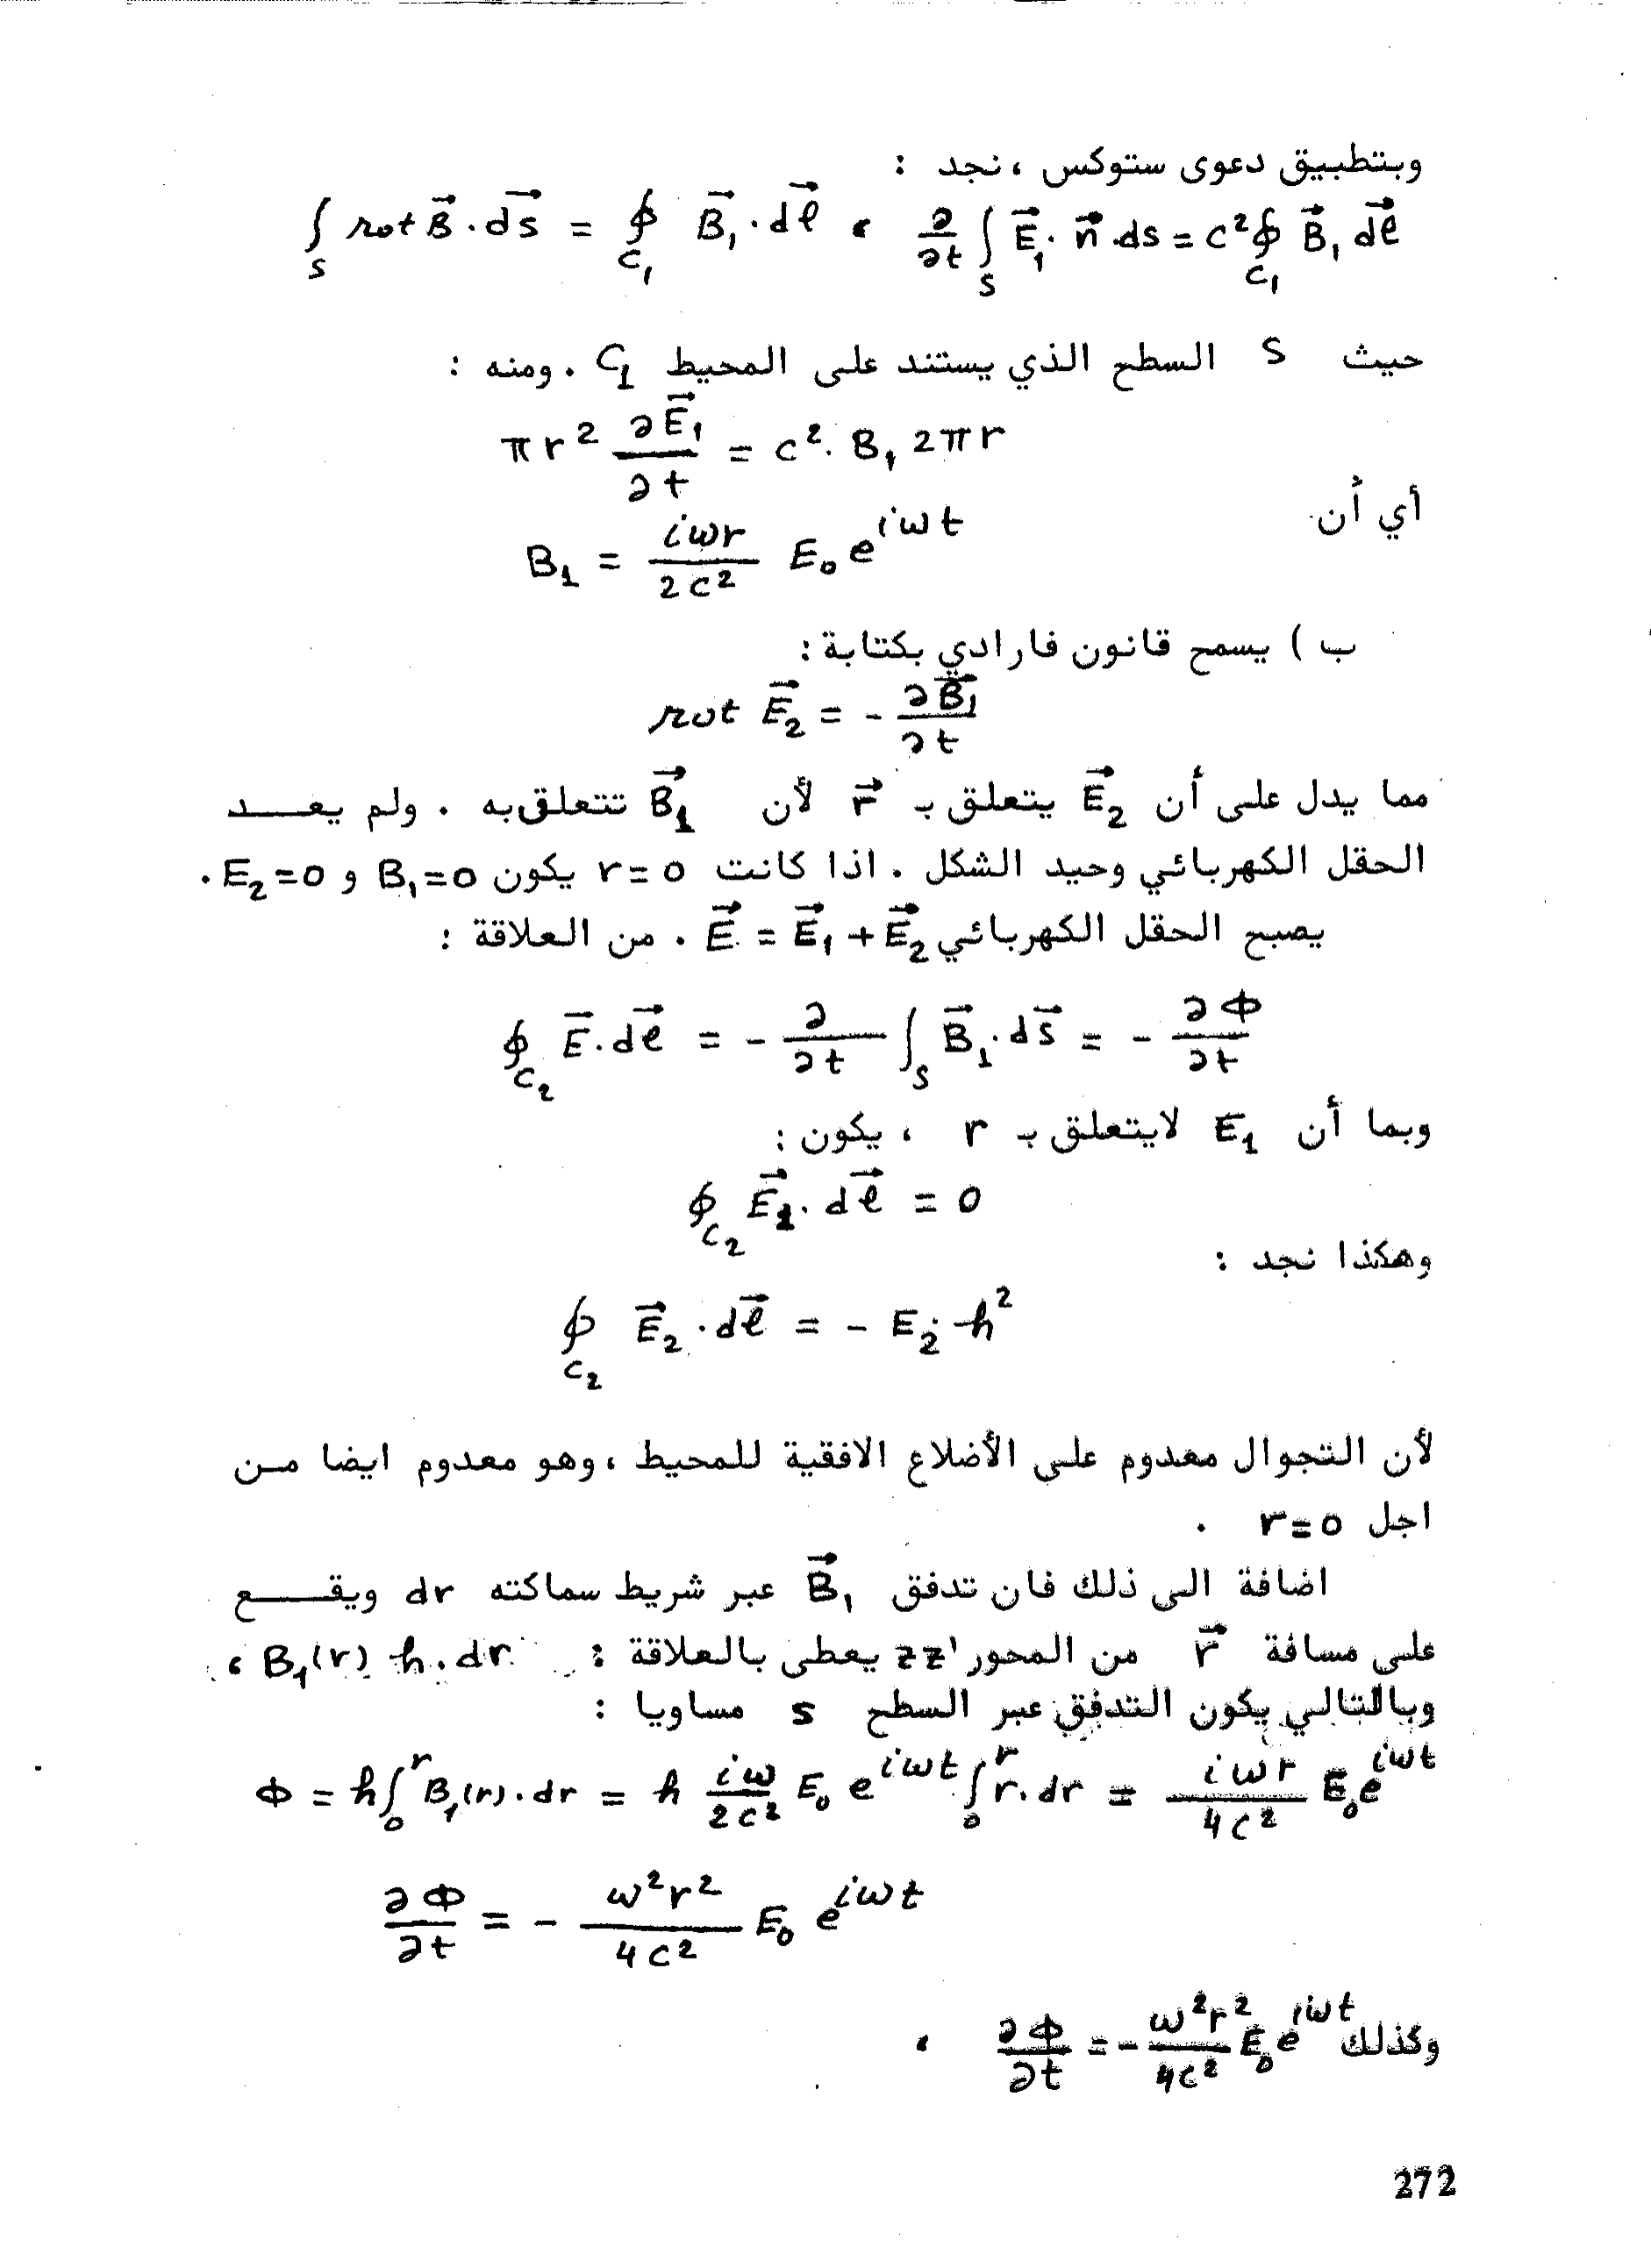 وبتطبيق دعوى ستوكس ، نجد :
∫_S rot B⃗ . ds⃗ = ∮_{C₁} B⃗₁ . dℓ⃗ ، ∂/∂t ∫_S E⃗₁ . n⃗ . ds = c² ∮_{C₁} B⃗₁ dℓ⃗
حيث S السطح الذي يستند على المحيط C₁ . ومنه :
πr² ∂E⃗₁/∂t = c² . B₁ 2πr
أي أن
B₁ = iωr/2c² E₀ e^{iωt}
ب ) يسمح قانون فارادي بكتابة :
rot E⃗₂ = - ∂B⃗₁/∂t
مما يدل على أن E⃗₂ يتعلق بـ r⃗ لأن B⃗₁ تتعلق به . ولم يعـــد
الحقل الكهربائي وحيد الشكل . اذا كانت r=0 يكون B₁=0 و E₂=0 .
يصبح الحقل الكهربائي E⃗ = E⃗₁ + E⃗₂ . من العلاقة :
∮_{C₂} E⃗ . dℓ⃗ = - ∂/∂t ∫_S B⃗₁ . ds⃗ = - ∂Φ/∂t
وبما أن E₁ لايتعلق بـ r ، يكون :
∮_{C₂} E⃗₁ . dℓ⃗ = 0
وهكذا نجد :
∮_{C₂} E⃗₂ . dℓ⃗ = - E₂ . h²
لأن التجوال معدوم على الأضلاع الافقية للمحيط ، وهو معدوم ايضا مـن
اجل r=0 .
اضافة الى ذلك فان تدفق B⃗₁ عبر شريط سماكته dr ويقـــع
على مسافة r⃗ من المحور zz' يعطى بالعلاقة : B₁(r) h.dr ،
وبالتالي يكون التدفق عبر السطح s مساويا :
Φ = h∫₀^r B₁(r).dr = h iω/2c² E₀ e^{iωt} ∫₀^r r.dr = iωr/4c² E₀e^{iωt}
∂Φ/∂t = - ω²r²/4c² E₀ e^{iωt}
وكذلك ∂Φ/∂t = - ω²r²/4c² E₀ e^{iωt} ،
272